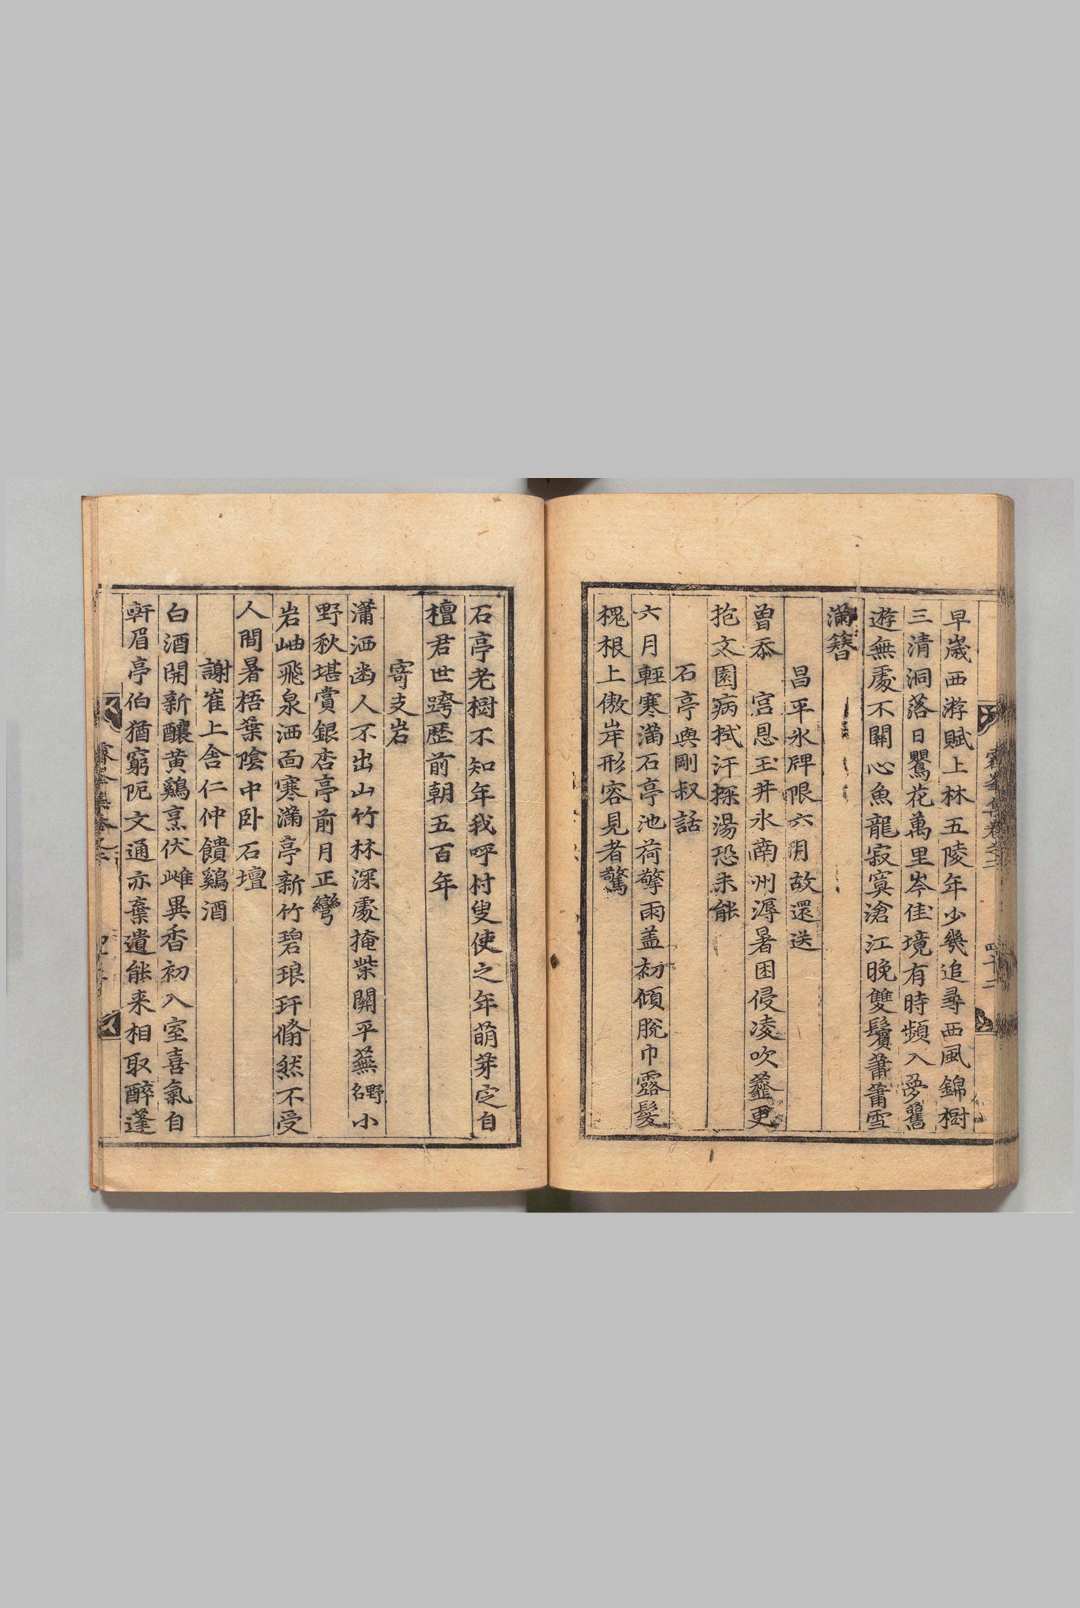 早歲西游賦上林五陵年少幾追尋西風錦樹
三清洞落日鸎花萬里岑佳境有時頻入夢舊
遊無處不關心魚龍寂寞滄江晚雙鬢蕭蕭雪
滿簪
昌平氷牌限六月故還送
曾忝 宮恩玉井氷南州溽暑困侵凌吹虀更
抱文園病拭汗探湯恐未能
石亭與剛叔話
六月輕寒滿石亭池荷擎雨盖初傾脫巾露髮
槐根上傲岸形容見者驚
石亭老樹不知年我呼村叟使之年萌芽定自
檀君世跨歷前朝五百年
寄支岩
瀟洒幽人不出山竹林深處掩柴關平蕪野名小
野秋堪賞銀杏亭前月正彎
岩岫飛泉洒面寒滿亭新竹碧琅玕翛然不受
人間暑梧葉陰中卧石壇
謝崔上舍仁仲饋鷄酒
白酒開新釀黄鷄烹伏雌異香初入室喜氣自
軒眉亭伯猶窮阨文通亦棄遺能来相取醉蓬